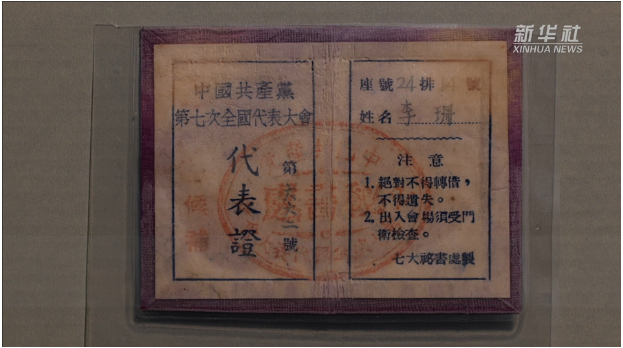 新华社
XINHUA NEWS
中國共產黨
第七次全國代表大會
代表證
第六六一號
候補
座號24排14號
姓名 李珊
注意
1. 絕對不得轉借，
不得遺失。
2. 出入會場須受門
衛檢查。
七大祕書處製